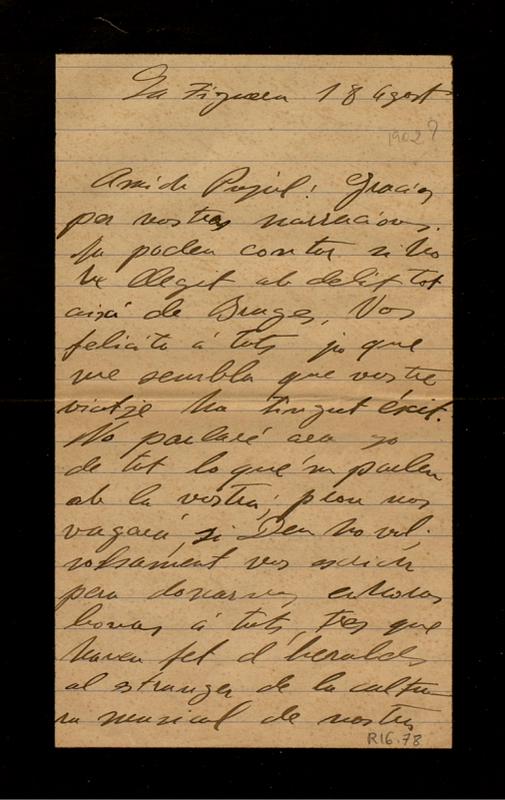 La Figuera 18 agost
1902?
Amich Pujol: Gracias
per vostras narracions.
Ja poden contar si ho
he llegit ab delit tot
aixó de Bruges. Vos
felicito á tots ja que
me sembla que vostre
viatje ha tingut éxit.
No parlaré ara jo
de tot lo que'm parlen
ab la vostra; prou nos
vagará, si Deu ho vol;
solsament vos escrich
pera donarvos enhoras
bonas á tots, tres que
haveu fet d'heralds
al estranger de la cultu-
ra musical de nostra
R16.78